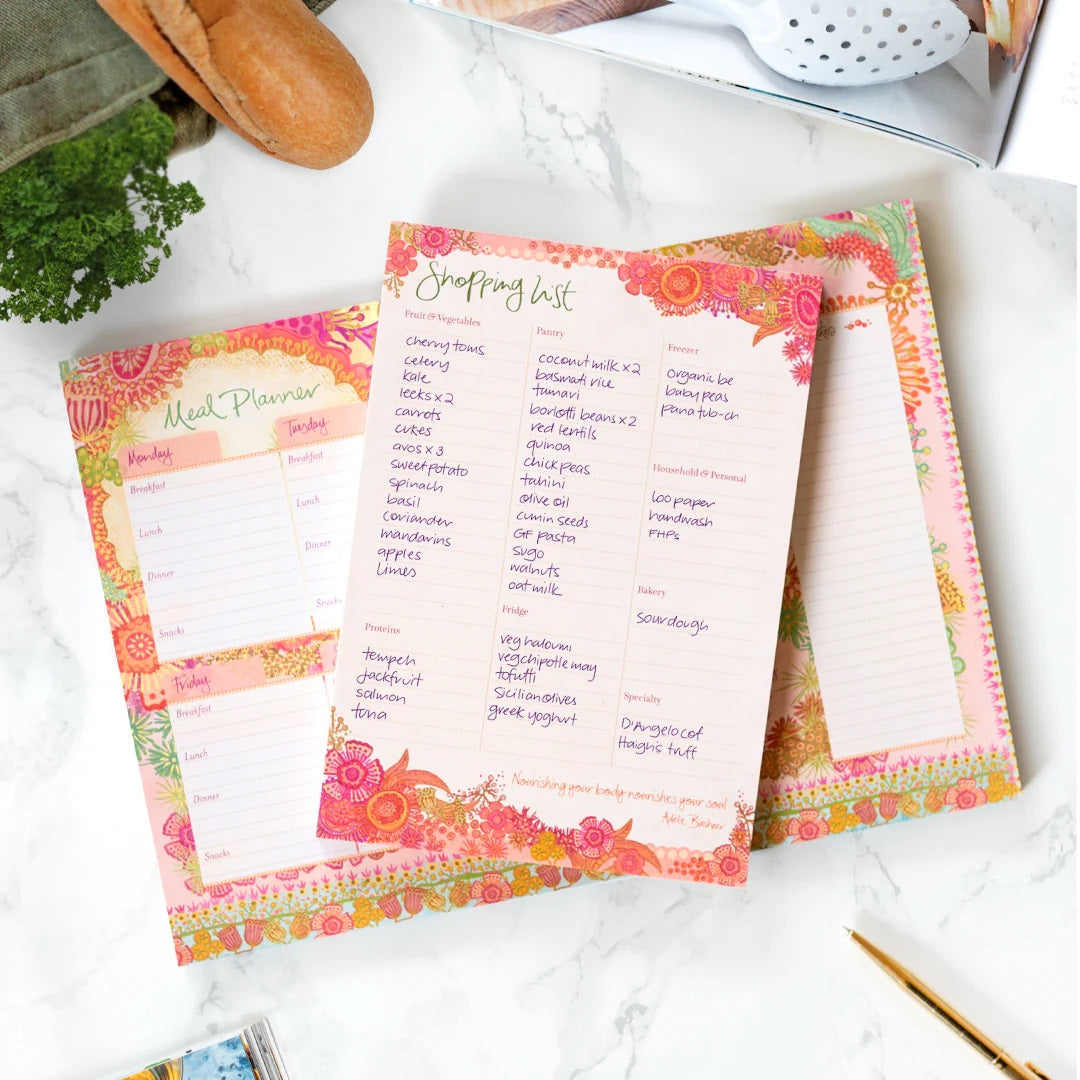 Shopping List
Fruit & Vegetables
cherry toms
celery
kale
leeks x 2
carrots
cukes
avos x 3
sweet potato
spinach
basil
coriander
mandarins
apples
limes
Proteins
tempeh
jackfruit
salmon
tona
Pantry
coconut milk x 2
basmati rice
tamari
borlotti beans x 2
red lentils
quinoa
chick peas
tahini
olive oil
cumin seeds
GF pasta
sugo
walnuts
oat milk
Fridge
veg haloumi
veg chipotle may
tofutti
Sicilian olives
greek yoghurt
Freezer
organic be
baby peas
pana tub-ch
Household & Personal
loo paper
handwash
FHPs
Bakery
sourdough
Specialty
D'Angelo cof
Haighs truff
Nourishing your body nourishes your soul
Adele Basheer
Meal Planner
Monday
Breakfast
Lunch
Dinner
Snacks
Tuesday
Breakfast
Lunch
Dinner
Snacks
Friday
Breakfast
Lunch
Dinner
Snacks